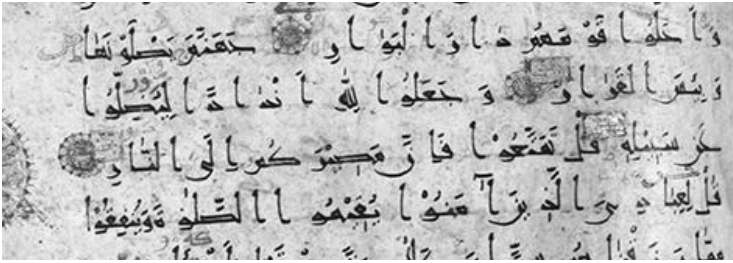 وَأَحَلُّوا قَوْمَهُمْ دَارَ الْبَوَارِ جَهَنَّمَ يَصْلَوْنَهَا
وَبِئْسَ الْقَرَارُ وَجَعَلُوا لِلَّهِ أَنْدَادًا لِيُضِلُّوا
عَنْ سَبِيلِهِ قُلْ تَمَتَّعُوا فَإِنَّ مَصِيرَكُمْ إِلَى النَّارِ
قُلْ لِعِبَادِيَ الَّذِينَ آمَنُوا يُقِيمُوا الصَّلَوٰةَ وَيُنْفِقُوا